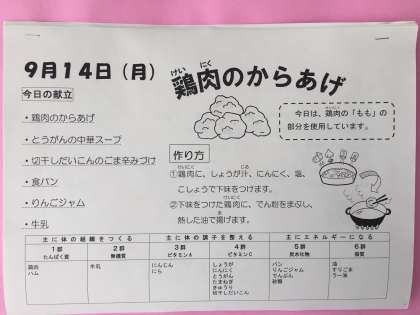 9月14日（月）
けい にく
鶏肉のからあげ
今日の献立
・鶏肉のからあげ
・とうがんの中華スープ
・切干しだいこんのごま辛みづけ
・食パン
・りんごジャム
・牛乳
今日は、鶏肉の「もも」の
部分を使用しています。
作り方
①鶏肉に、しょうが汁、にんにく、塩、
こしょうで下味をつけます。
②下味をつけた鶏肉に、でん粉をまぶし、
熱した油で揚げます。
主に体の組織をつくる 主に体の調子を整える 主にエネルギーになる
1群 2群 3群 4群 5群 6群
たんぱく質 無機質 ビタミンA ビタミンC 炭水化物 脂質
鶏肉 牛乳 にんじん しょうが パン 油
ハム にら にんにく りんごジャム すりごま
とうがん でんぷん ラー油
たまねぎ 砂糖
きゅうり
切干しだいこん